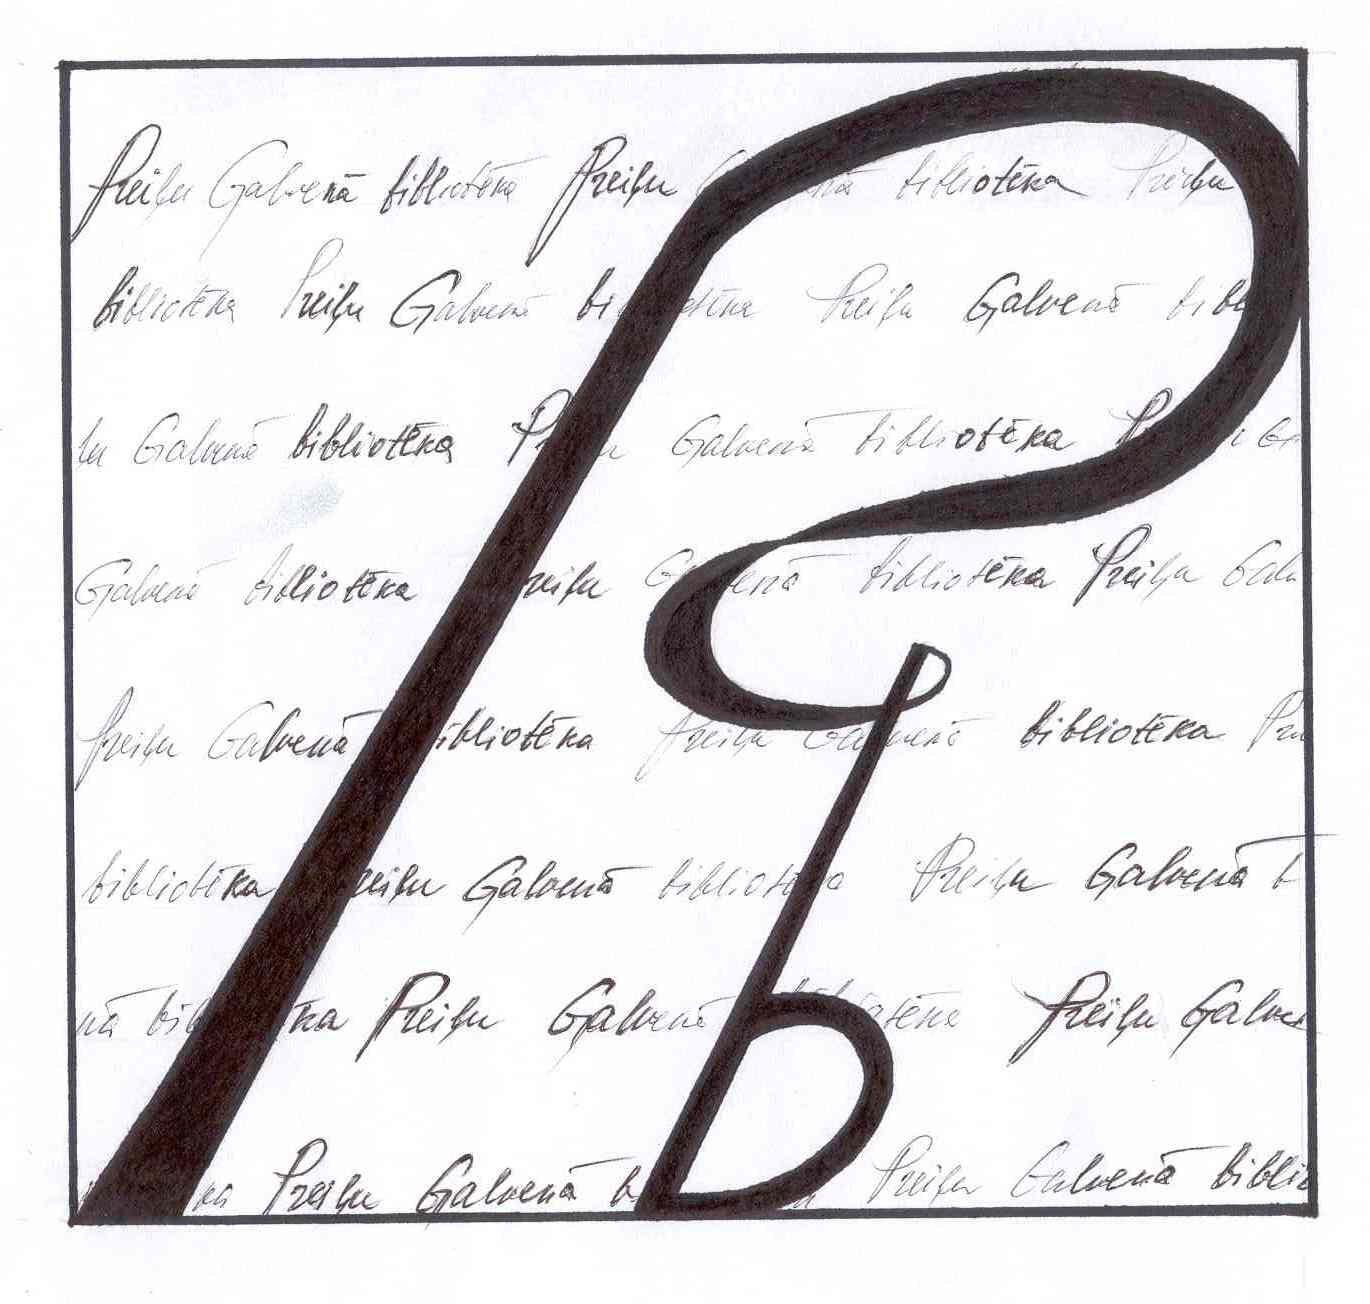 Preiļu Galvenā bibliotēka Preiļu nā bibliotēka Preiļu
bibliotēka Preiļu Galvenā bi otēka Preiļu Galvenā bibl
ļu Galvenā bibliotēka Pr u Galvenā bibliotēka P Ga
Galvenā bibliotēka reiļu Galvenā bibliotēka Preiļu Galv
Preiļu Galvenā ibliotēka Preiļu Galvenā bibliotēka Pre
bibliotēka reiļu Galvenā bibliotēka Preiļu Galvenā b
nā bib ēka Preiļu Galvenā otēka Preiļu Galve
ka Preiļu Galvenā b Preiļu Galvenā biblio